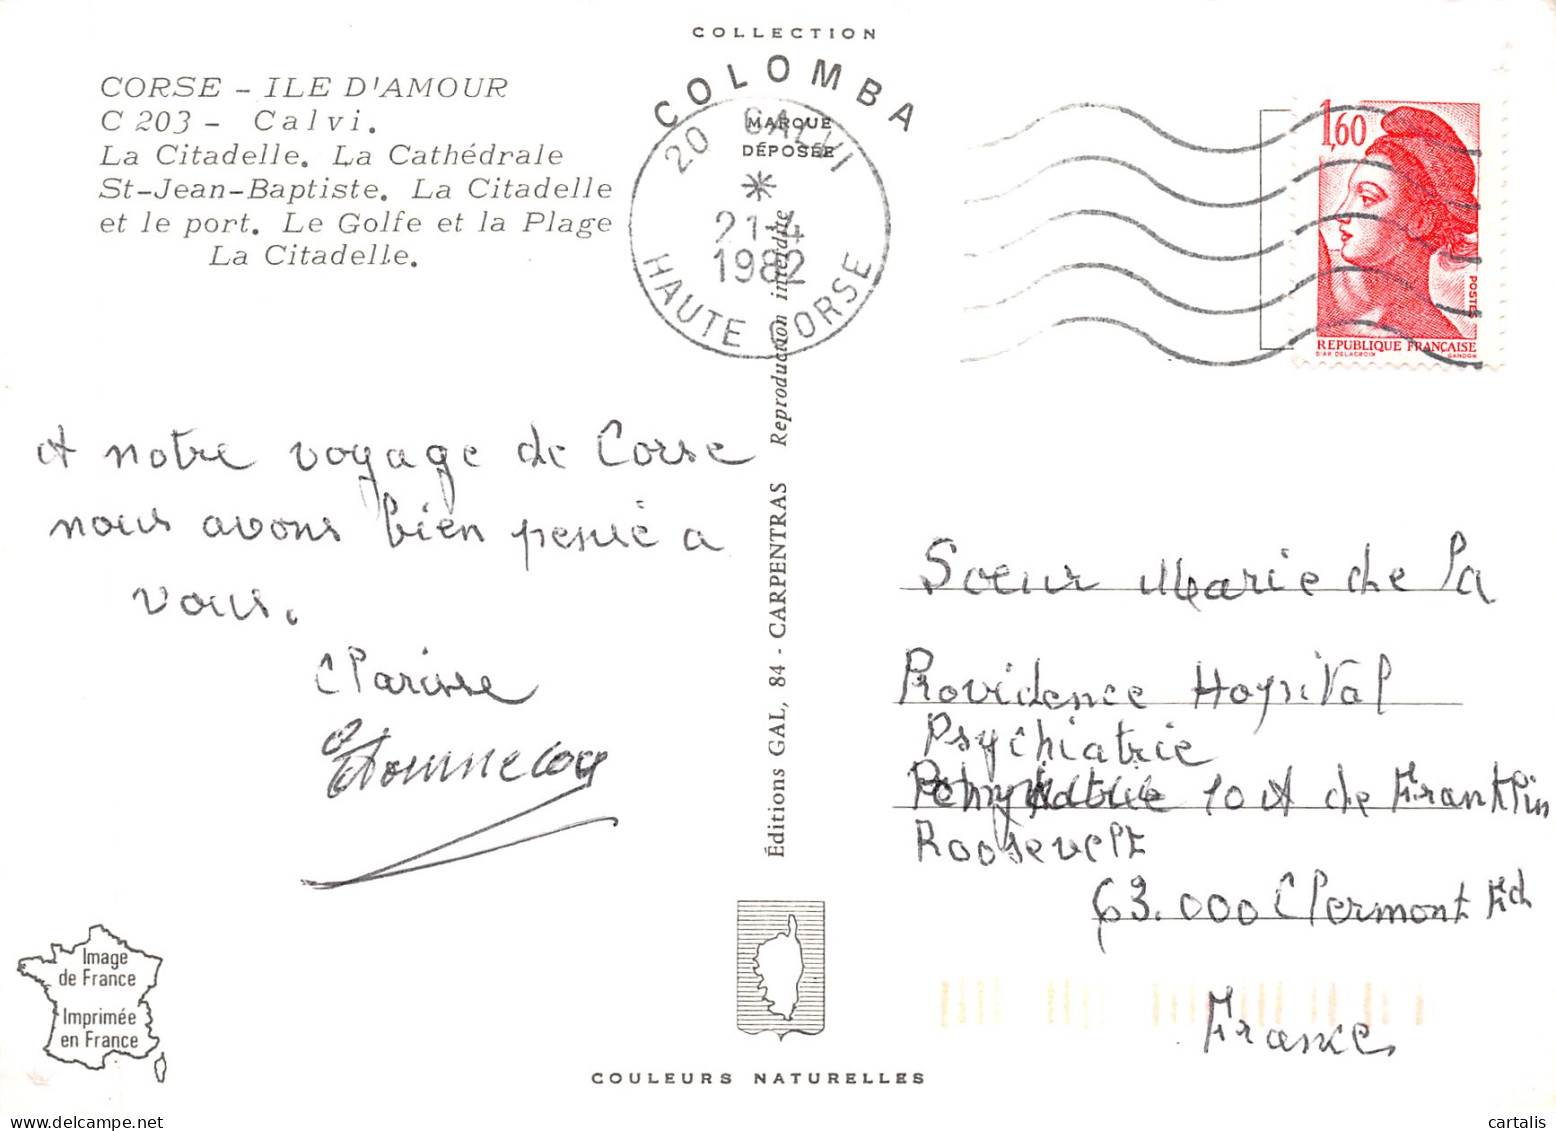 COLLECTION
COLOMBA
MARQUE
DÉPOSÉE
CORSE - ILE D'AMOUR
C 203 - Calvi.
La Citadelle. La Cathédrale
St-Jean-Baptiste. La Citadelle
et le port. Le Golfe et la Plage
La Citadelle.
20 CALVI
21-4
1982
HAUTE CORSE
1,60
POSTES
REPUBLIQUE FRANÇAISE
D'AP. DELACROIX GANDON
A notre voyage de Corse
nous avons bien pensé a
vous.
Clarisse
Éditions GAL, 84 - CARPENTRAS Reproduction interdite
Soeur Marie de la
Providence Hopital
Psychiatrie
10 A de Franklin
Roosevelt
63.000 Clermont Fd
France
Image
de France
Imprimée
en France
COULEURS NATURELLES
cartalis